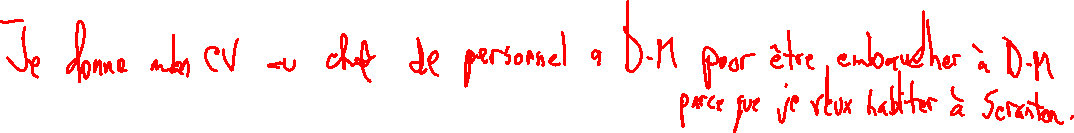 Je donne mon CV au chef de personnel a D-M pour être embaucher à D-M
parce que je veux habiter à Scranton.